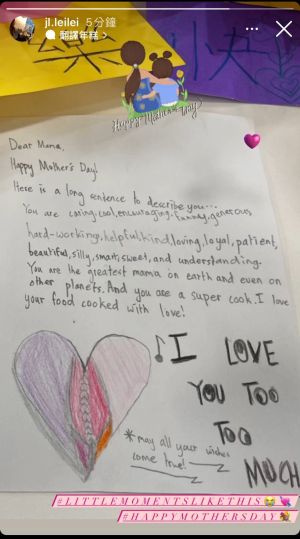 jl.leilei 5分鐘
翻譯年糕 >
樂
快
Happy Mother's Day
Dear Mama,
Happy Mother's Day!
Here is a long sentence to describe you...
You are caring, cool, encouraging, funny, generous
hard-working, helpful, kind, loving, loyal, patient,
beautiful, silly, smart, sweet, and understanding.
You are the greatest mama on earth and even on
other planets. And you are a super cook. I love
your food cooked with love!
I LOVE
YOU TOO
TOO
MUCH
*may all your wishes
come true!
#LITTLEMOMENTSLIKETHIS
#HAPPYMOTHERSDAY